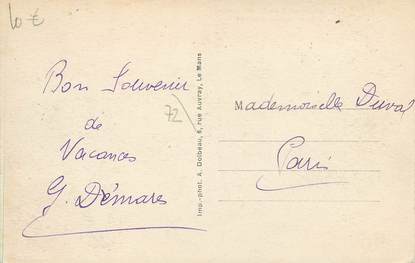 10 €
Bon Souvenir
de
Vacances
G. Démares
72
Imp.-phot. A. Dolbeau, 6, rue Auvray, Le Mans
Mademoiselle Duval
Paris